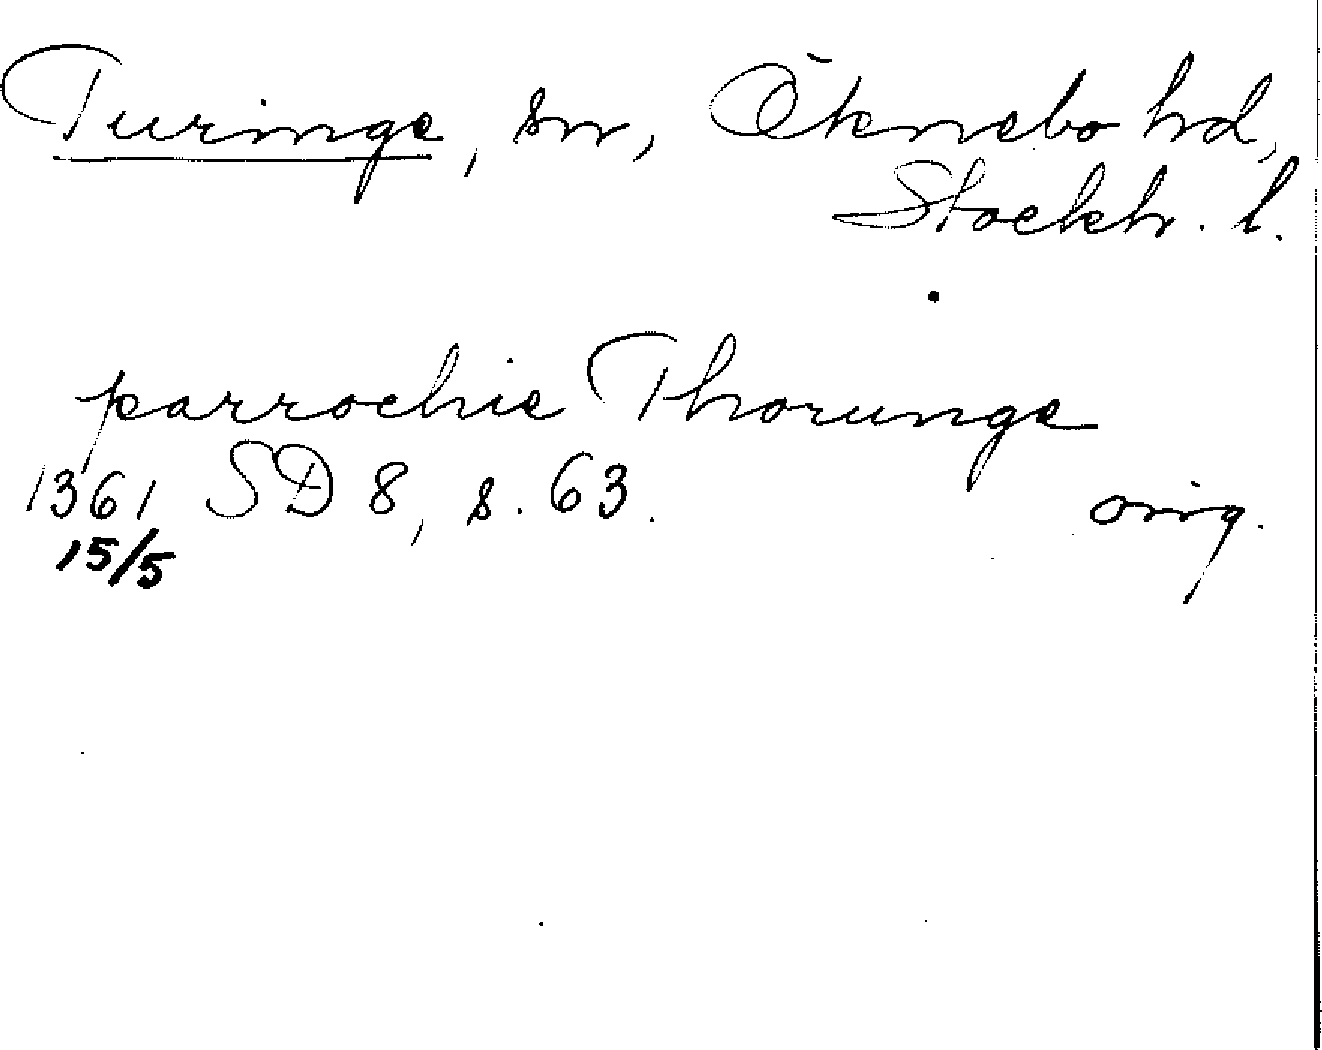 Turinge, sn, Öknebo hd,
Stockh. l.
parrochie Thorunge
1361 SD 8, s. 63. orig.
15/5